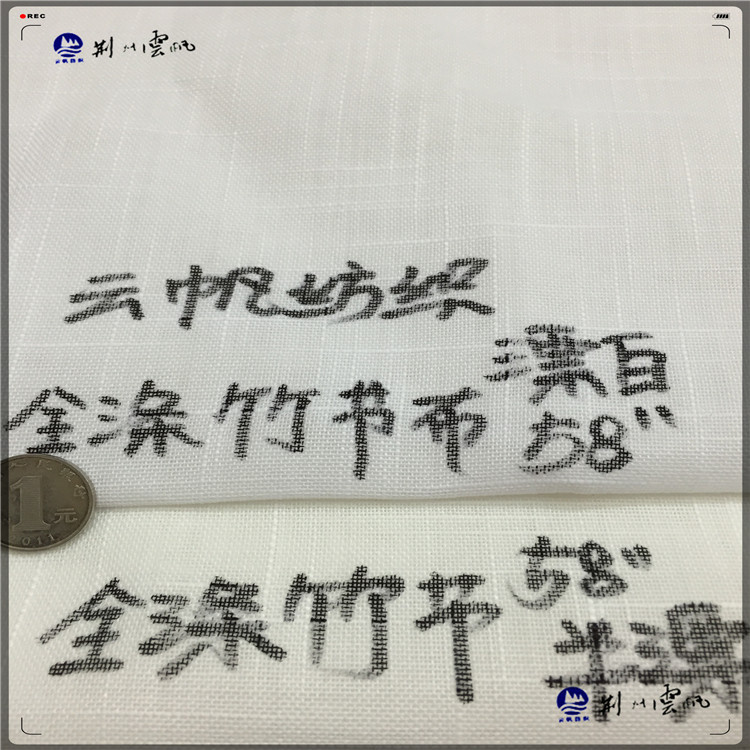 REC
荆州雲帆
云帆纺织
漂白
全涤竹节布 58"
1元
2011
全涤竹节 58"
半漂
荆州雲帆